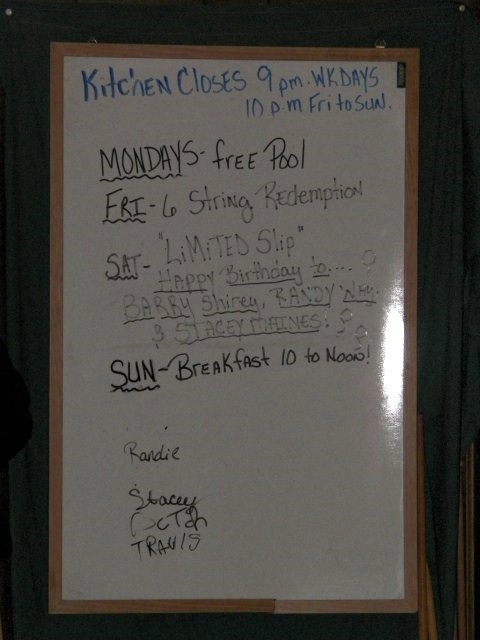 Kitchen Closes 9 pm. WKDAYS
10 pm Fri to Sun.
MONDAYS - free Pool
FRI - 6 String Redemption
SAT - "LiMiTED Slip"
HAPPY Birthday to....
BARBY Shirey, RANDY
& STACEY MAINES.
SUN - BreakfasT 10 to Noon!
Randie
Stacey
TRAVIS